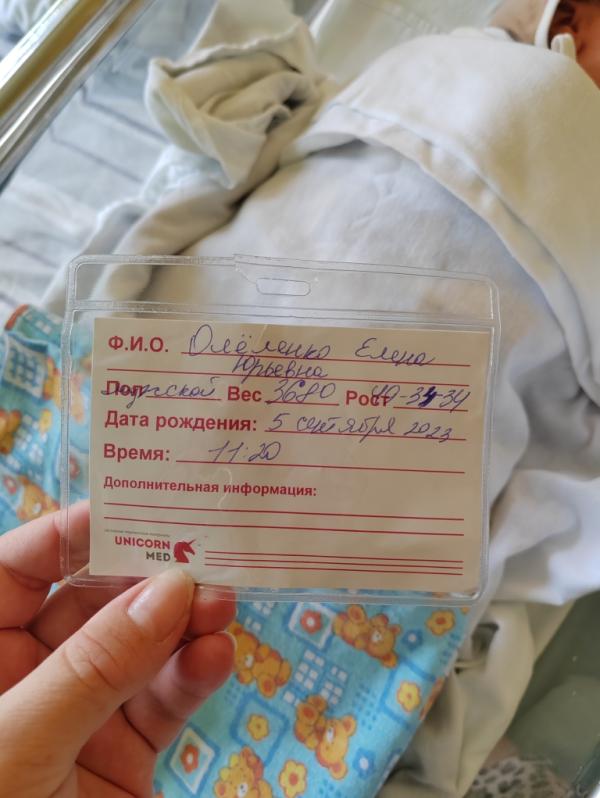 Ф.И.О. Олёленко Елена
Юрьевна
Пол мужской Вес 3680 Рост 49-34-34
Дата рождения: 5 сентября 2023
Время: 11:20
Дополнительная информация:
UNICORN
MED